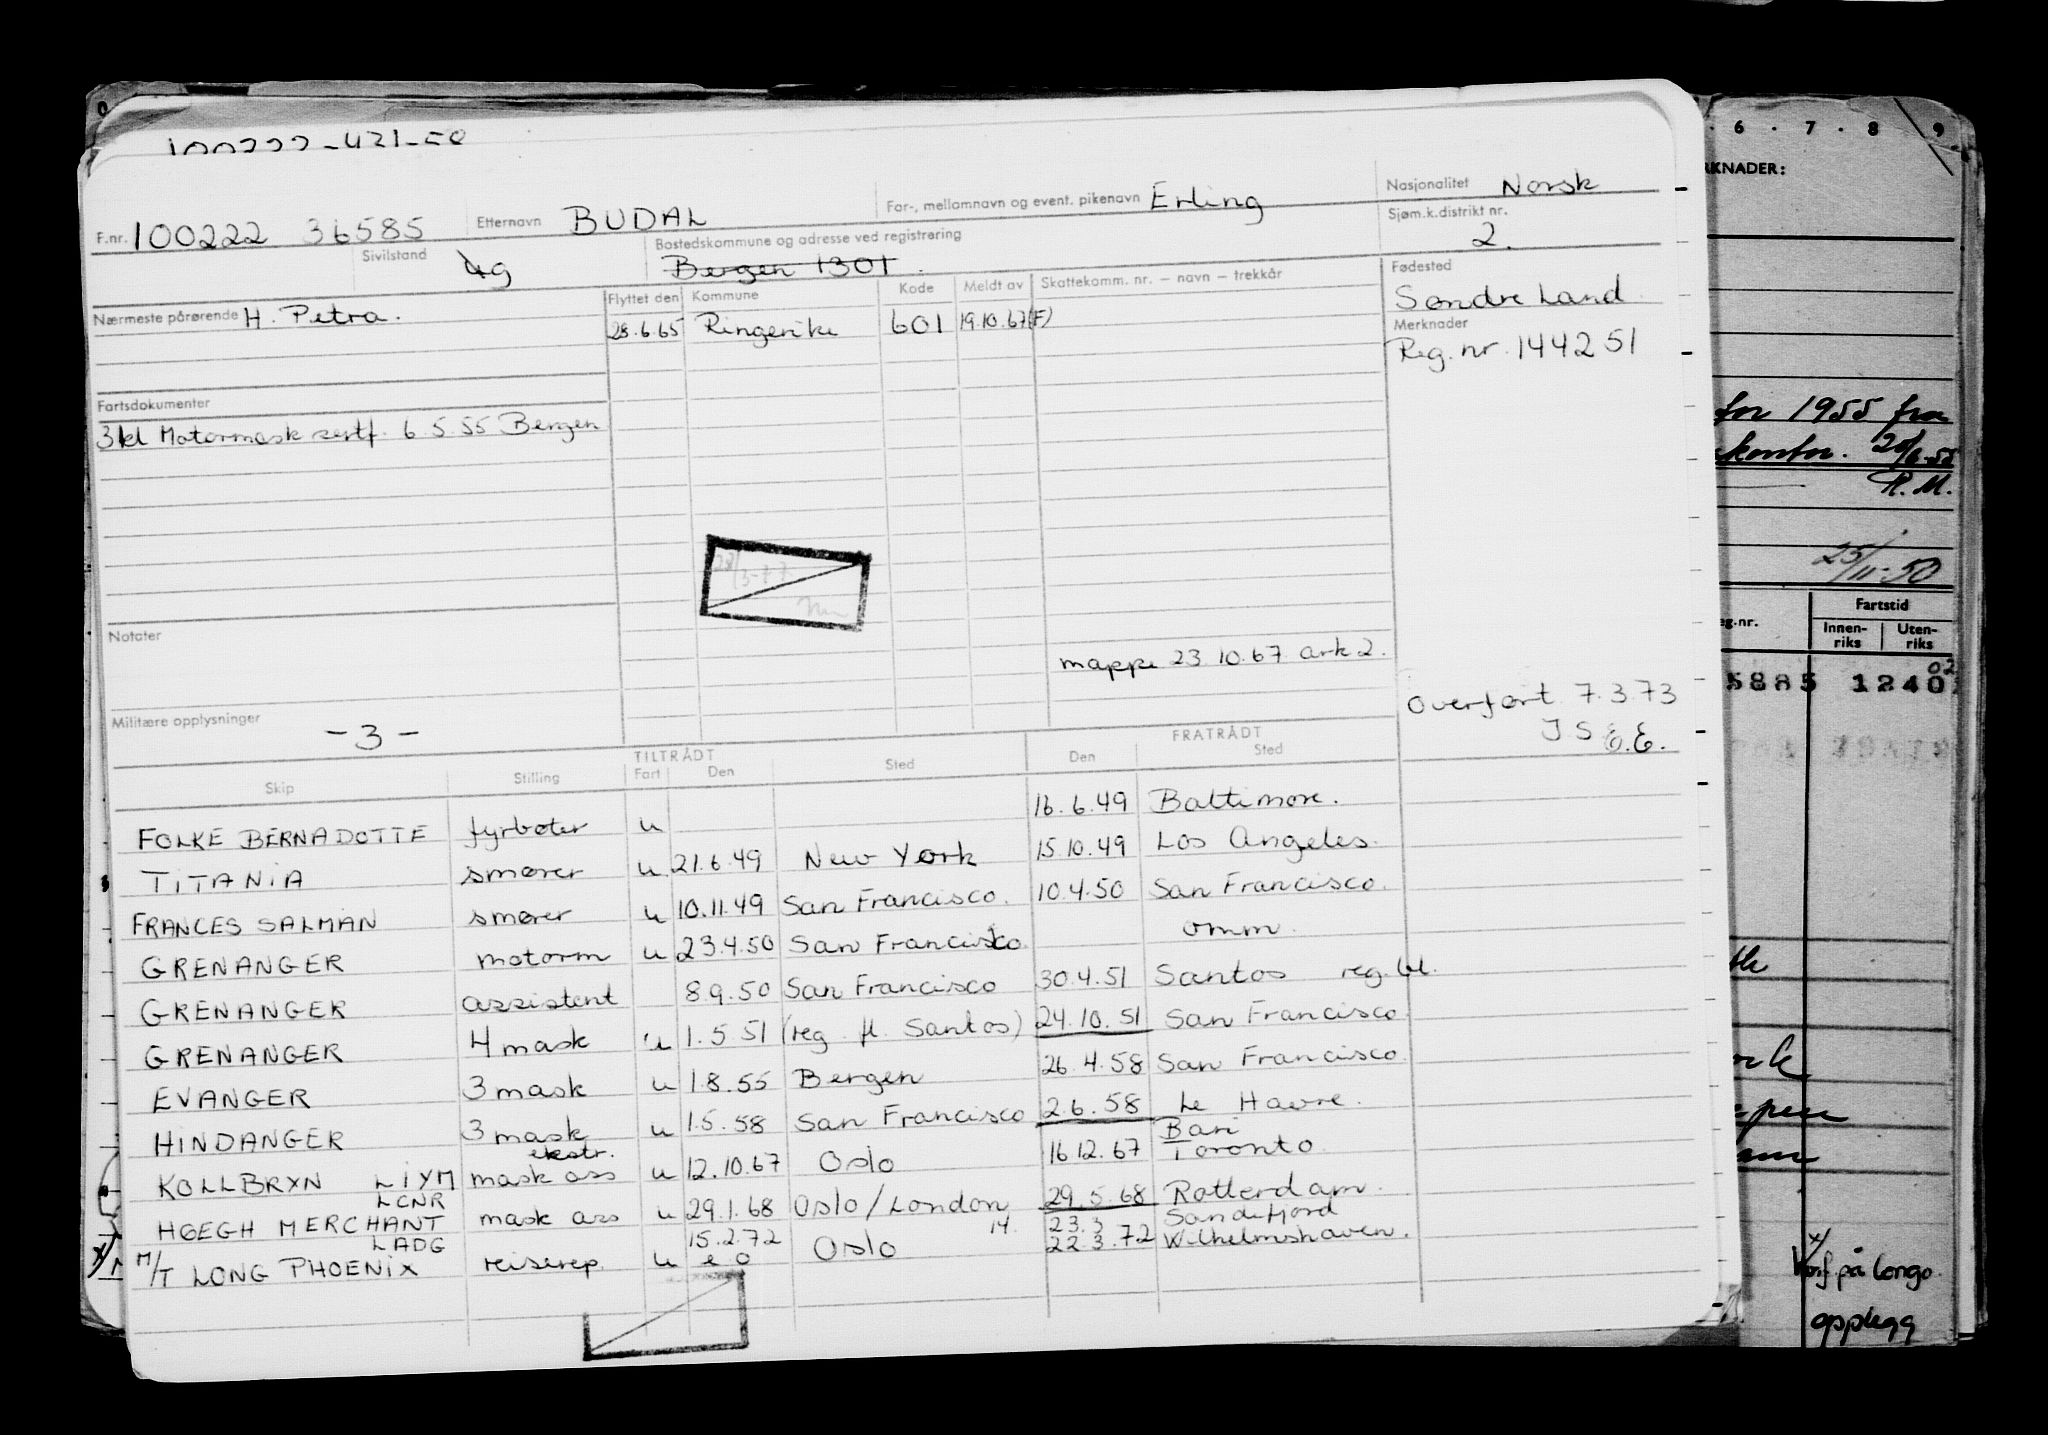 Etternavn BUDAL For-, mellomnavn og event. pikenavn Erling Nasjonalitet Norsk
F.nr. 100222 36585 Sjøm.k.distrikt nr. 2.
Sivilstand g Bostedskommune og adresse ved registrering Bergen 1301.
Nærmeste pårørende H. Petra. Flyttet den Kommune Kode Meldt av Skattekomm. nr. – navn – trekkår Fødested
28.6.65 Ringerike 601 19.10.67(F) Søndre Land
Merknader
Reg. nr. 144251
Fartsdokumenter
3kl Motormask sertf. 6.5.55 Bergen
Notater
mappe 23.10.67 ark 2.
Militære opplysninger
-3-
Overført 7.3.73
J.S E.E.
TILTRÅDT FRATRÅDT
Skip Stilling Fart Den Sted Den Sted
FOLKE BERNADOTTE fyrbøter u 16.6.49 Baltimore.
TITANIA smører u 21.6.49 New York 15.10.49 Los Angeles.
FRANCES SALMAN smører u 10.11.49 San Francisco. 10.4.50 San Francisco.
GRENANGER motorm u 23.4.50 San Francisco omm.
GRENANGER assistent 8.9.50 San Francisco 30.4.51 Santos reg.bl.
GRENANGER 4 mask u 1.5.51 (reg. fl. Santos) 24.10.51 San Francisco.
EVANGER 3 mask u 1.8.55 Bergen 26.4.58 San Francisco.
HINDANGER 3 mask u 1.5.58 San Francisco 2.6.58 Le Havre.
ekstr. Bari
KOLLBRYN LIYM mask ass u 12.10.67 Oslo 16.12.67 Toronto.
LCNR
HØEGH MERCHANT mask ass u 29.1.68 Oslo/London 29.5.68 Rotterdam.
LADG 15.2.72 14. 23.3 Sandefjord
M/T LONG PHOENIX reiserep. u e o Oslo 22.3.72 Wilhelmshaven.
6 . 7 . 8 9
KNADER:
for 1955 fra
kontor.
R.M.
25/11-50
Fartstid
eg.nr. Innen-riks Uten-riks
02
5885 1240
på Longo
opplegg